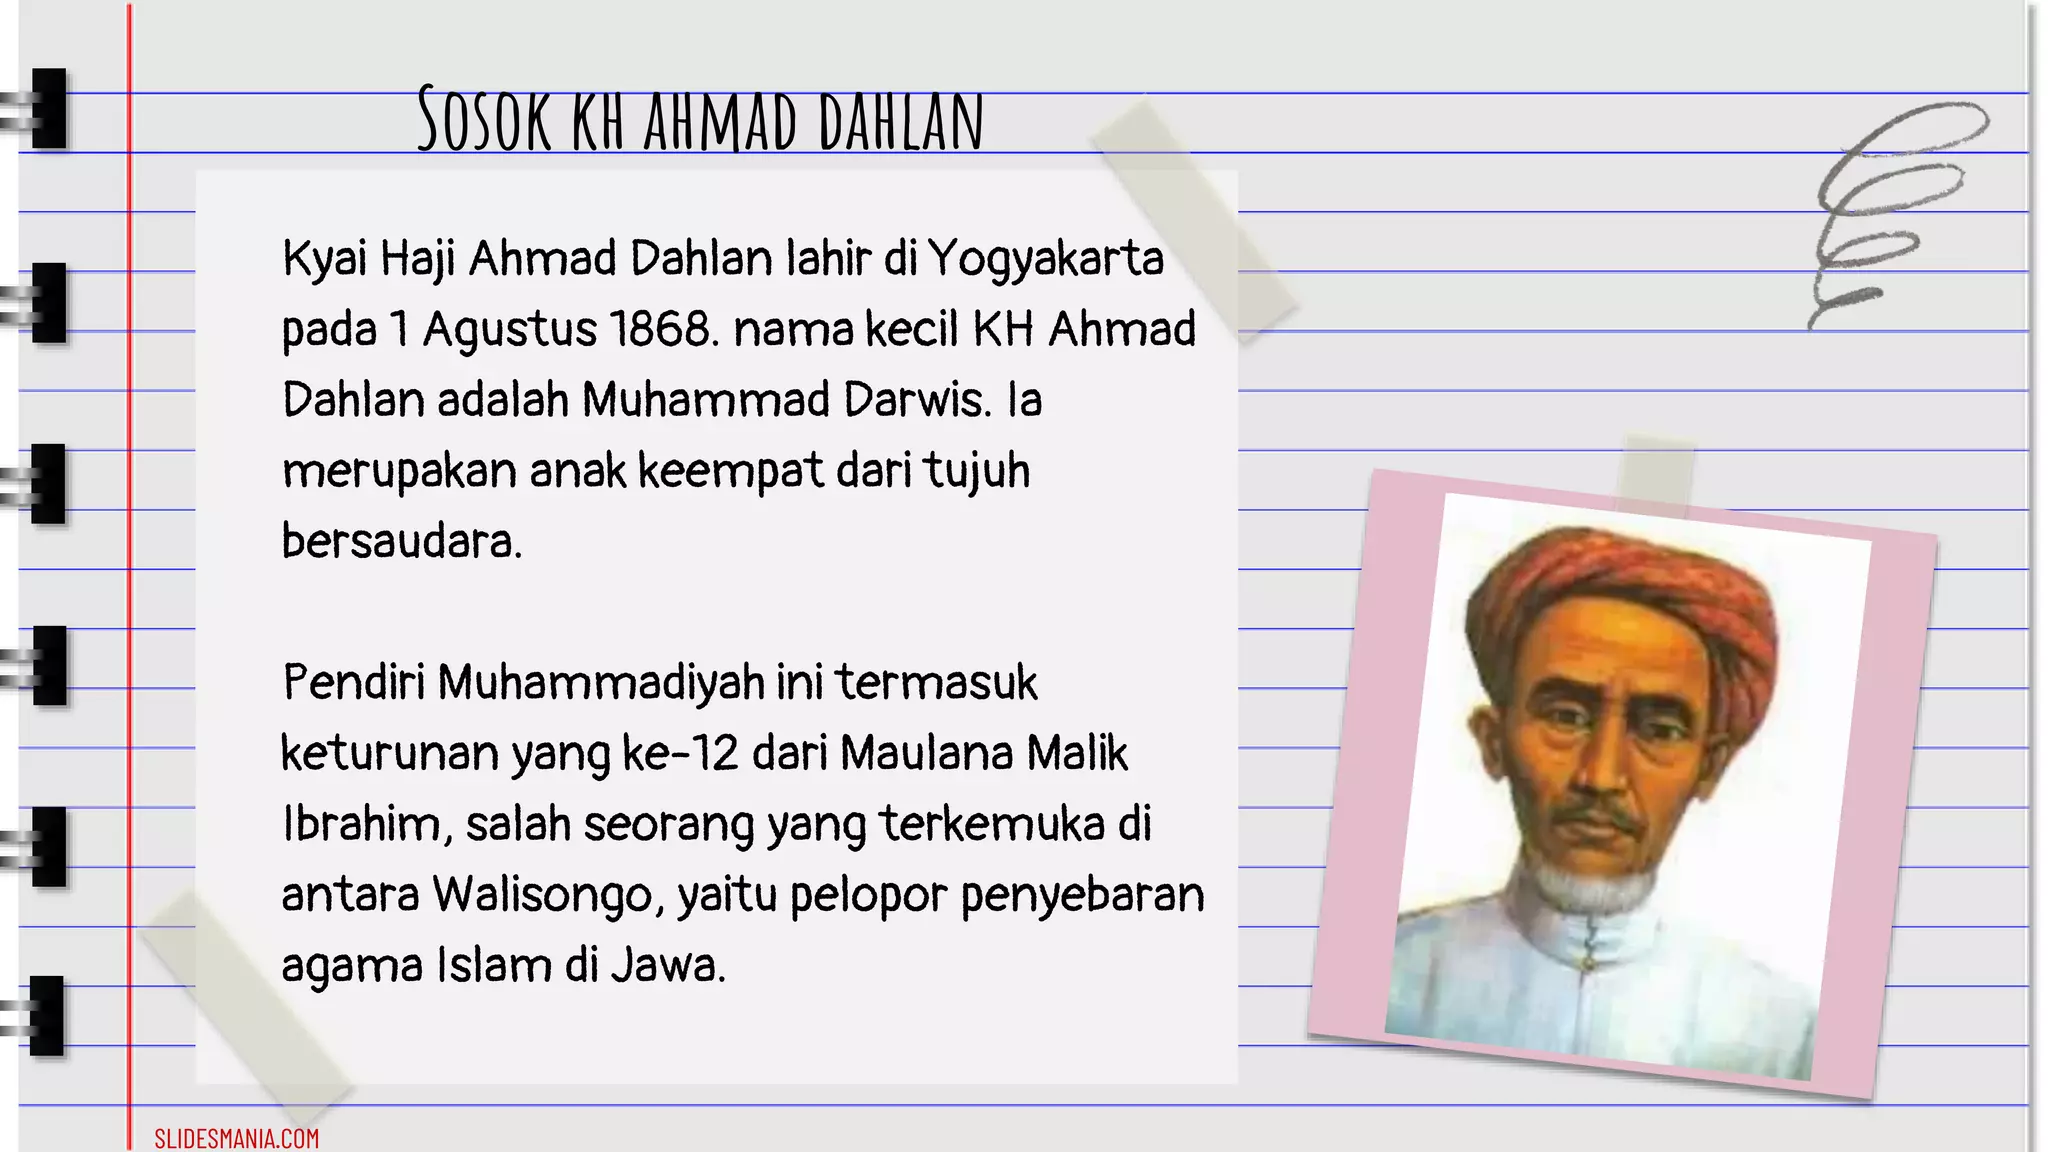 Sosok kh ahmad dahlan
Kyai Haji Ahmad Dahlan lahir di Yogyakarta
pada 1 Agustus 1868. nama kecil KH Ahmad
Dahlan adalah Muhammad Darwis. Ia
merupakan anak keempat dari tujuh
bersaudara.
Pendiri Muhammadiyah ini termasuk
keturunan yang ke-12 dari Maulana Malik
Ibrahim, salah seorang yang terkemuka di
antara Walisongo, yaitu pelopor penyebaran
agama Islam di Jawa.
SLIDESMANIA.COM